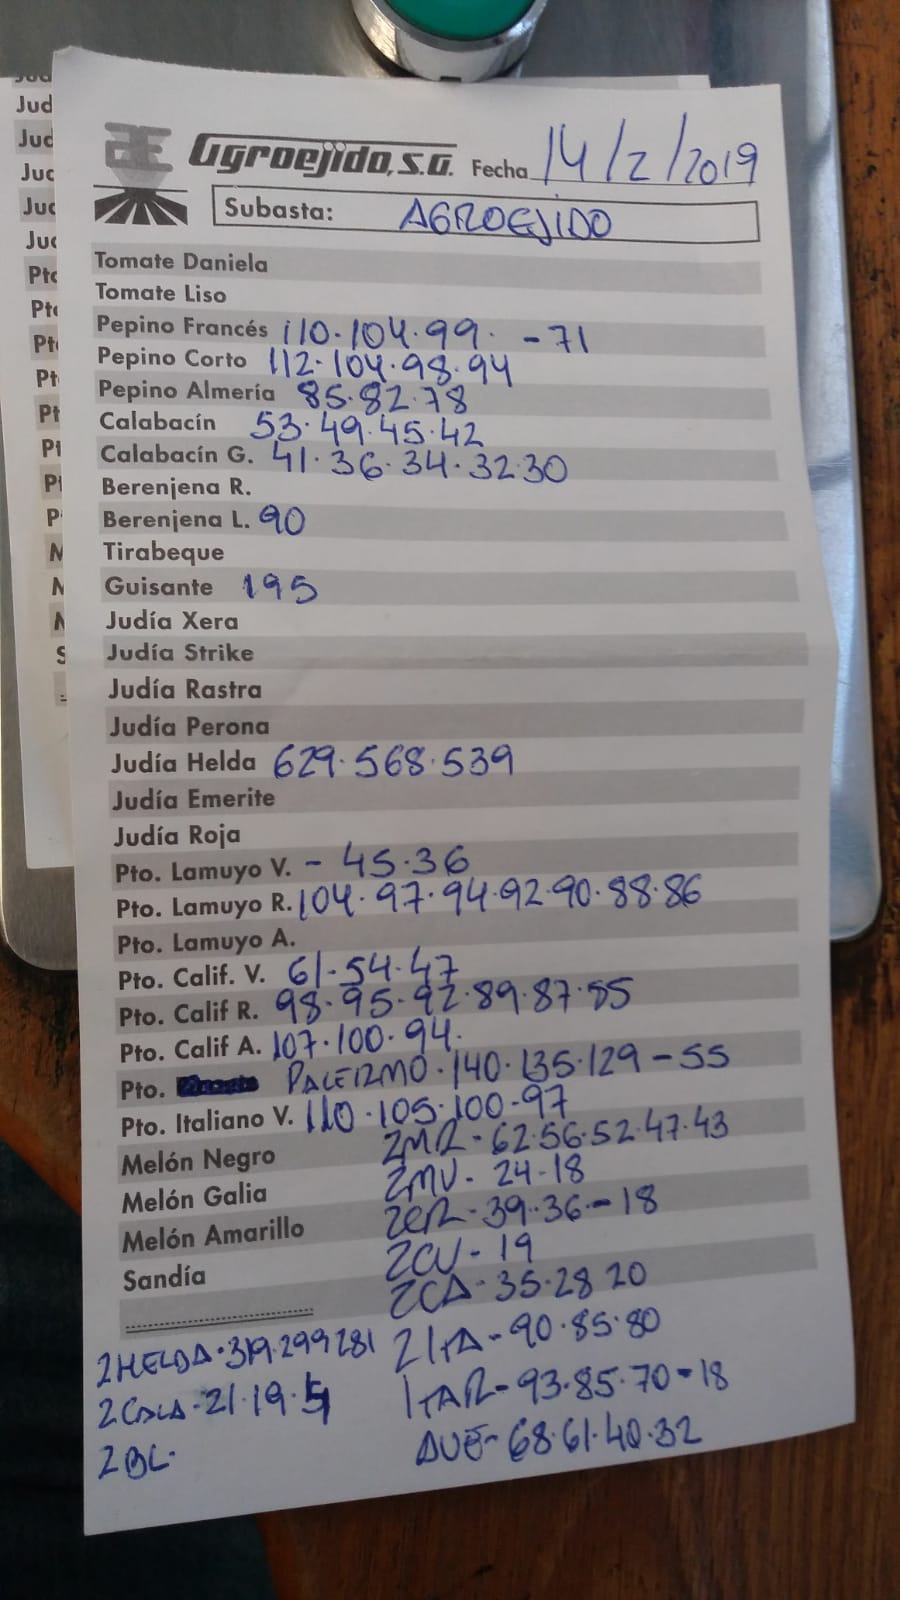 Agroejido, S.A. Fecha 14/2/2019
Subasta: AGROEJIDO
Tomate Daniela
Tomate Liso
Pepino Francés 110.104.99. -71
Pepino Corto 112.104.98.94
Pepino Almería 85.82.78
Calabacín 53.49.45.42
Calabacín G. 41.36.34.32.30
Berenjena R.
Berenjena L. 90
Tirabeque
Guisante 195
Judía Xera
Judía Strike
Judía Rastra
Judía Perona
Judía Helda 629.568.539
Judía Emerite
Judía Roja
Pto. Lamuyo V. - 45.36
Pto. Lamuyo R. 104.97.94.92.90.88.86
Pto. Lamuyo A.
Pto. Calif. V. 61.54.47
Pto. Calif R. 98.95.92.89.87.85
Pto. Calif A. 107.100.94.
Pto. PALERMO.140.135.129-55
Pto. Italiano V. 110.105.100.97
Melón Negro 2MR-62.56.52.47.43
Melón Galia 2MV. 24-18
Melón Amarillo 2CR-39.36.-18
Sandía 2CV-19
2CA-35.28 20
2HELDA.319.299 281 2ITA-90.85.80
2CALA-21.19. ITAR-93.85.70-18
2BL. 68.61.40.32
Jud
Jud
Pto
Pto